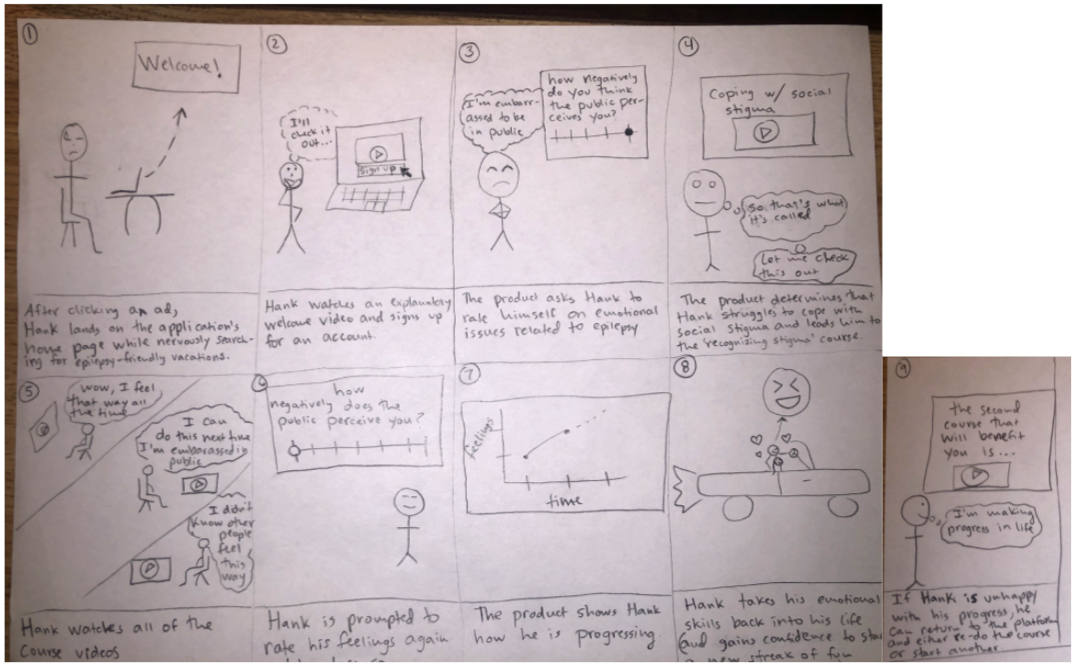 1
Welcome!
After clicking an ad,
Hank lands on the application's
home page while nervously search-
ing for epilepsy-friendly vacations.
2
I'll
check it
out...
Sign up
Hank watches an explanatory
welcome video and signs up
for an account.
3
I'm embarr-
assed to be
in public
how negatively
do you think
the public per-
ceives you?
The product asks Hank to
rate himself on emotional
issues related to epilepsy
4
Coping w/ social
stigma
so that's what
it's called
Let me check
this out
The product determines that
Hank struggles to cope with
social stigma and leads him to
the 'recognizing stigma' course.
5
wow, I feel
that way all
the time
I can
do this next time
I'm embarassed in
public
I didn't
know other
people
feel
this
way
Hank watches all of the
course videos
6
how
negatively does the
public perceive you?
Hank is prompted to
rate his feelings again
7
feelings
time
The product shows Hank
how he is progressing.
8
Hank takes his emotional
skills back into his life
and gains confidence to
a new streak of fun
9
the second
course that
will benefit
you is...
I'm making
progress in life
If Hank is unhappy
with his progress, he
can return to the platform
and either re-do the course
or start another